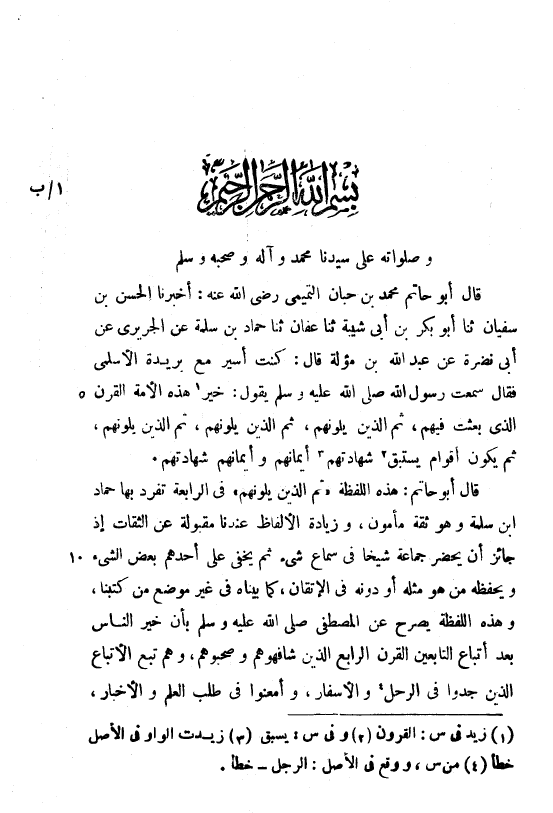 بسم الله الرحمن الرحيم
١/ب
و صلواته على سيدنا محمد و آله و صحبه و سلم
قال أبو حاتم محمد بن حبان التميمى رضى الله عنه: أخبرنا الحسن بن
سفيان ثنا أبو بكر بن أبى شيبة ثنا عفان ثنا حماد بن سلمة عن الجريرى عن
أبى نضرة عن عبد الله بن مؤلة قال: كنت أسير مع بريدة الأسلمى
فقال سمعت رسول الله صلى الله عليه و سلم يقول: خير١ هذه الأمة القرن ٥
الذى بعثت فيهم، ثم الذين يلونهم، ثم الذين يلونهم، ثم الذين يلونهم،
ثم يكون أقوام يستبق٢ شهادتهم٣ أيمانهم و أيمانهم شهادتهم.
قال أبو حاتم: هذه اللفظة «ثم الذين يلونهم» فى الرابعة تفرد بها حماد
ابن سلمة و هو ثقة مأمون، و زيادة الألفاظ عندنا مقبولة عن الثقات إذ
جائز أن يحضر جماعة شيخا فى سماع شىء ثم يخفى على أحدهم بعض الشىء ١٠
و يحفظه من هو مثله أو دونه فى الإتقان، كما بيناه فى غير موضع من كتبنا،
و هذه اللفظة يصرح عن المصطفى صلى الله عليه و سلم بأن خير الناس
بعد أتباع التابعين القرن الرابع الذين شافهوهم و صحبوهم، و هم تبع الأتباع
الذين جدوا فى الرحل٤ و الأسفار، و أمعنوا فى طلب العلم و الأخبار،
(١) زيد فى س: القرون (٢) و فى س: يسبق (٣) زيدت الواو فى الأصل
خطأ (٤) من س، و وقع فى الأصل: الرجل - خطأ.